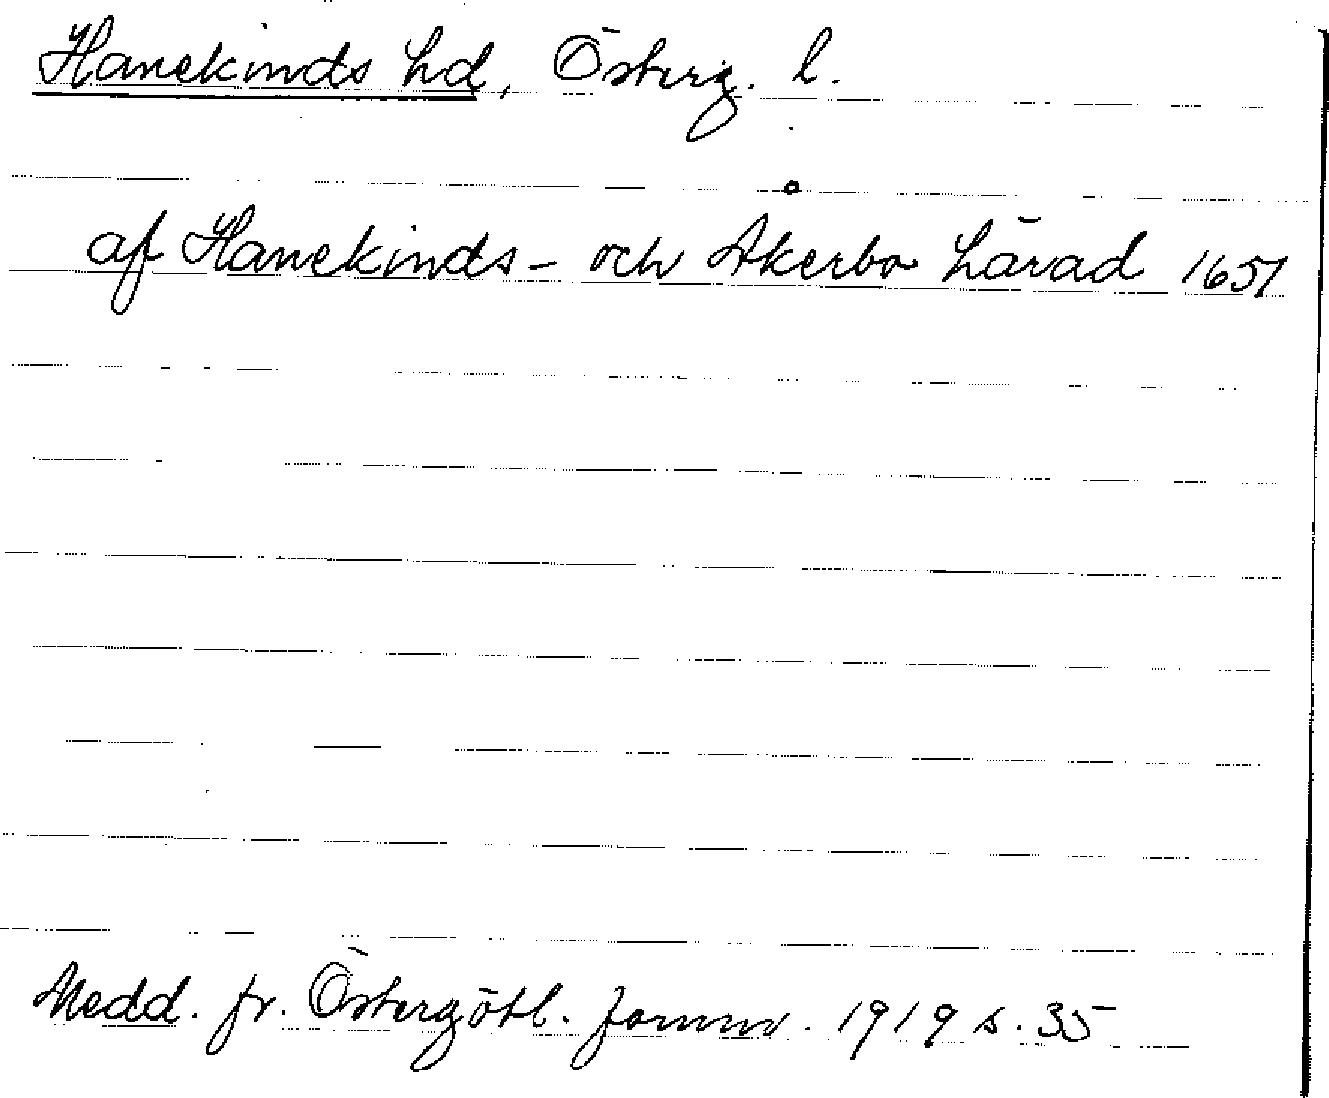 Hanekinds hd, Österg. l.
af Hanekinds- och Åkerbo härad 1651
Medd. fr. Östergötl. fornm. 1919 s. 35